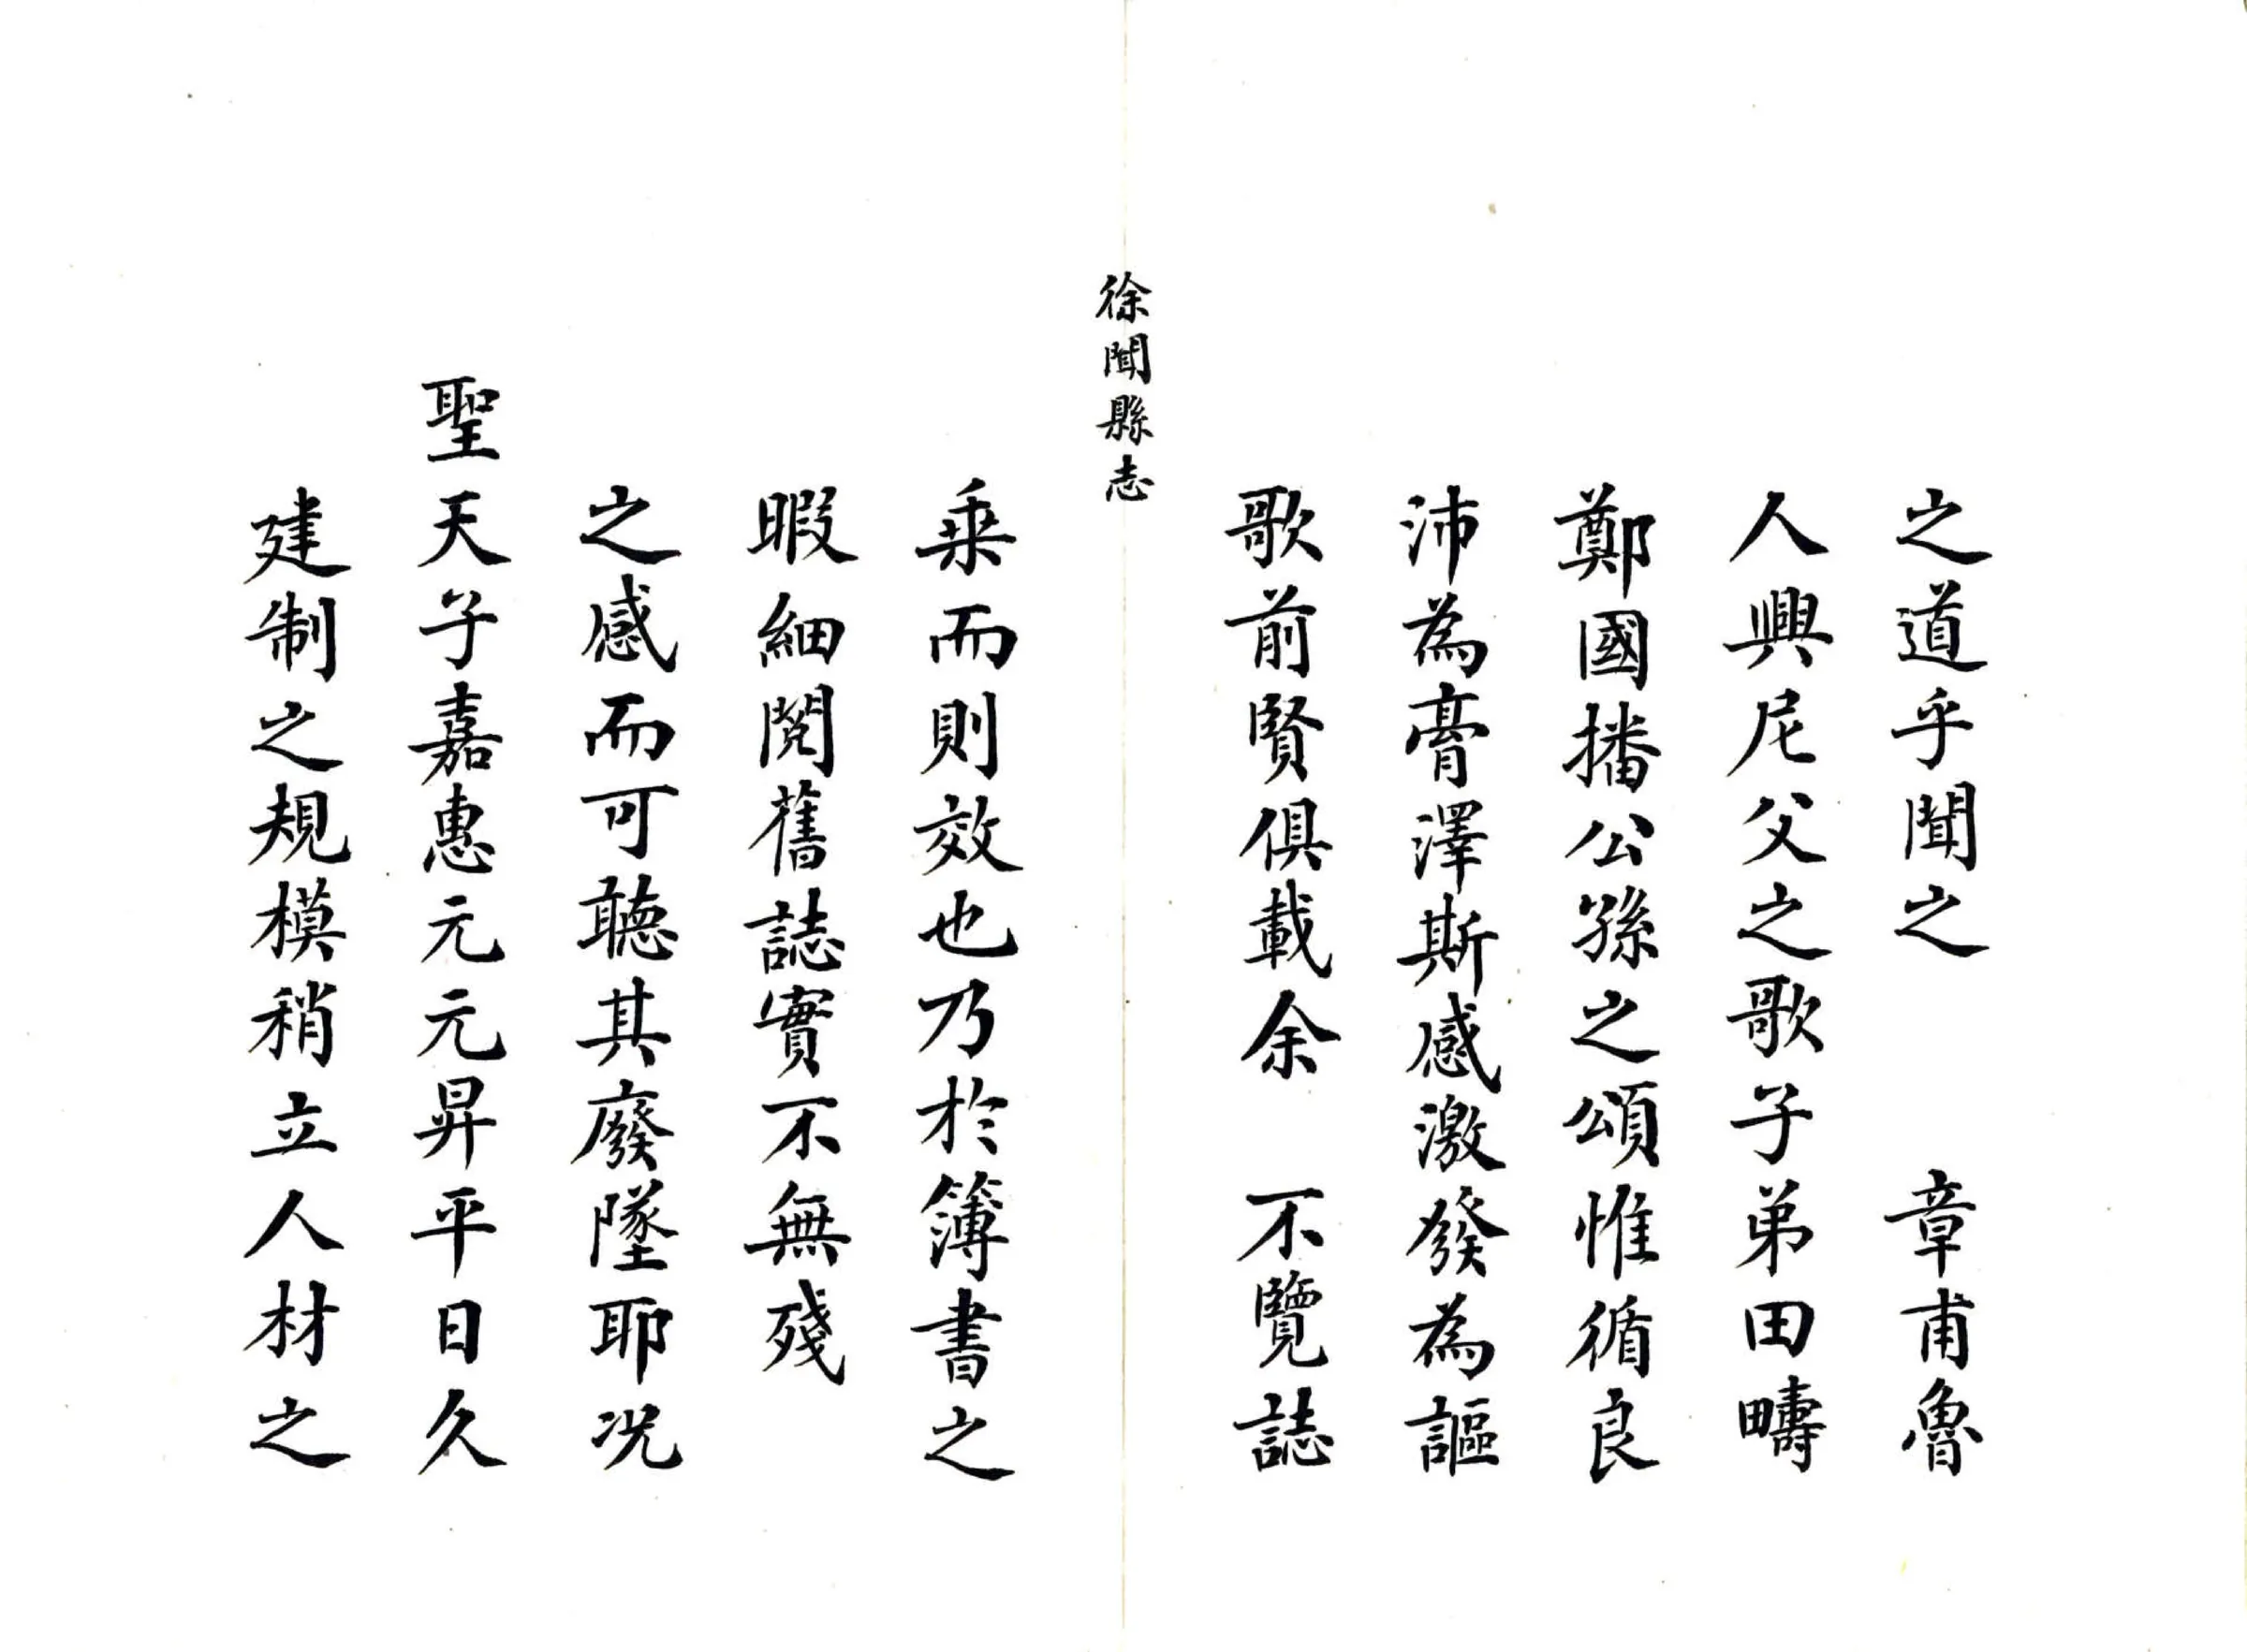 之道乎聞之　章甫魯
人興尼父之歌子弟田疇
鄭國播公孫之頌惟循良
沛為膏澤斯感激發為謳
歌前賢俱載余　不覽誌
徐聞縣志
乗而則效也乃於簿書之
暇細閱舊誌實不無殘
之感而可聽其廢墜耶况
聖天子嘉惠元元昇平日久
建制之規模稍立人材之